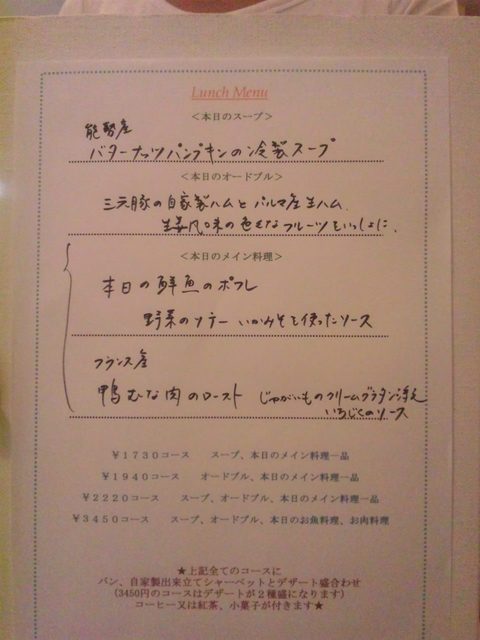 Lunch Menu
＜本日のスープ＞
能勢産
バターナッツパンプキンの冷製スープ
＜本日のオードブル＞
三元豚の自家製ハムとパルマ産生ハム、
生姜風味の色々なフルーツといっしょに、
＜本日のメイン料理＞
本日の鮮魚のポワレ
野菜のソテー いかみそを使ったソース
フランス産
鴨むね肉のロースト じゃがいものクリームグラタン添え
いちじくのソース
￥1730コース スープ、本日のメイン料理一品
￥1940コース オードブル、本日のメイン料理一品
￥2220コース スープ、オードブル、本日のメイン料理一品
￥3450コース スープ、オードブル、本日のお魚料理、お肉料理
★上記全てのコースに
パン、自家製出来立てシャーベットとデザート盛合わせ
(3450円のコースはデザートが2種盛になります)
コーヒー又は紅茶、小菓子が付きます★